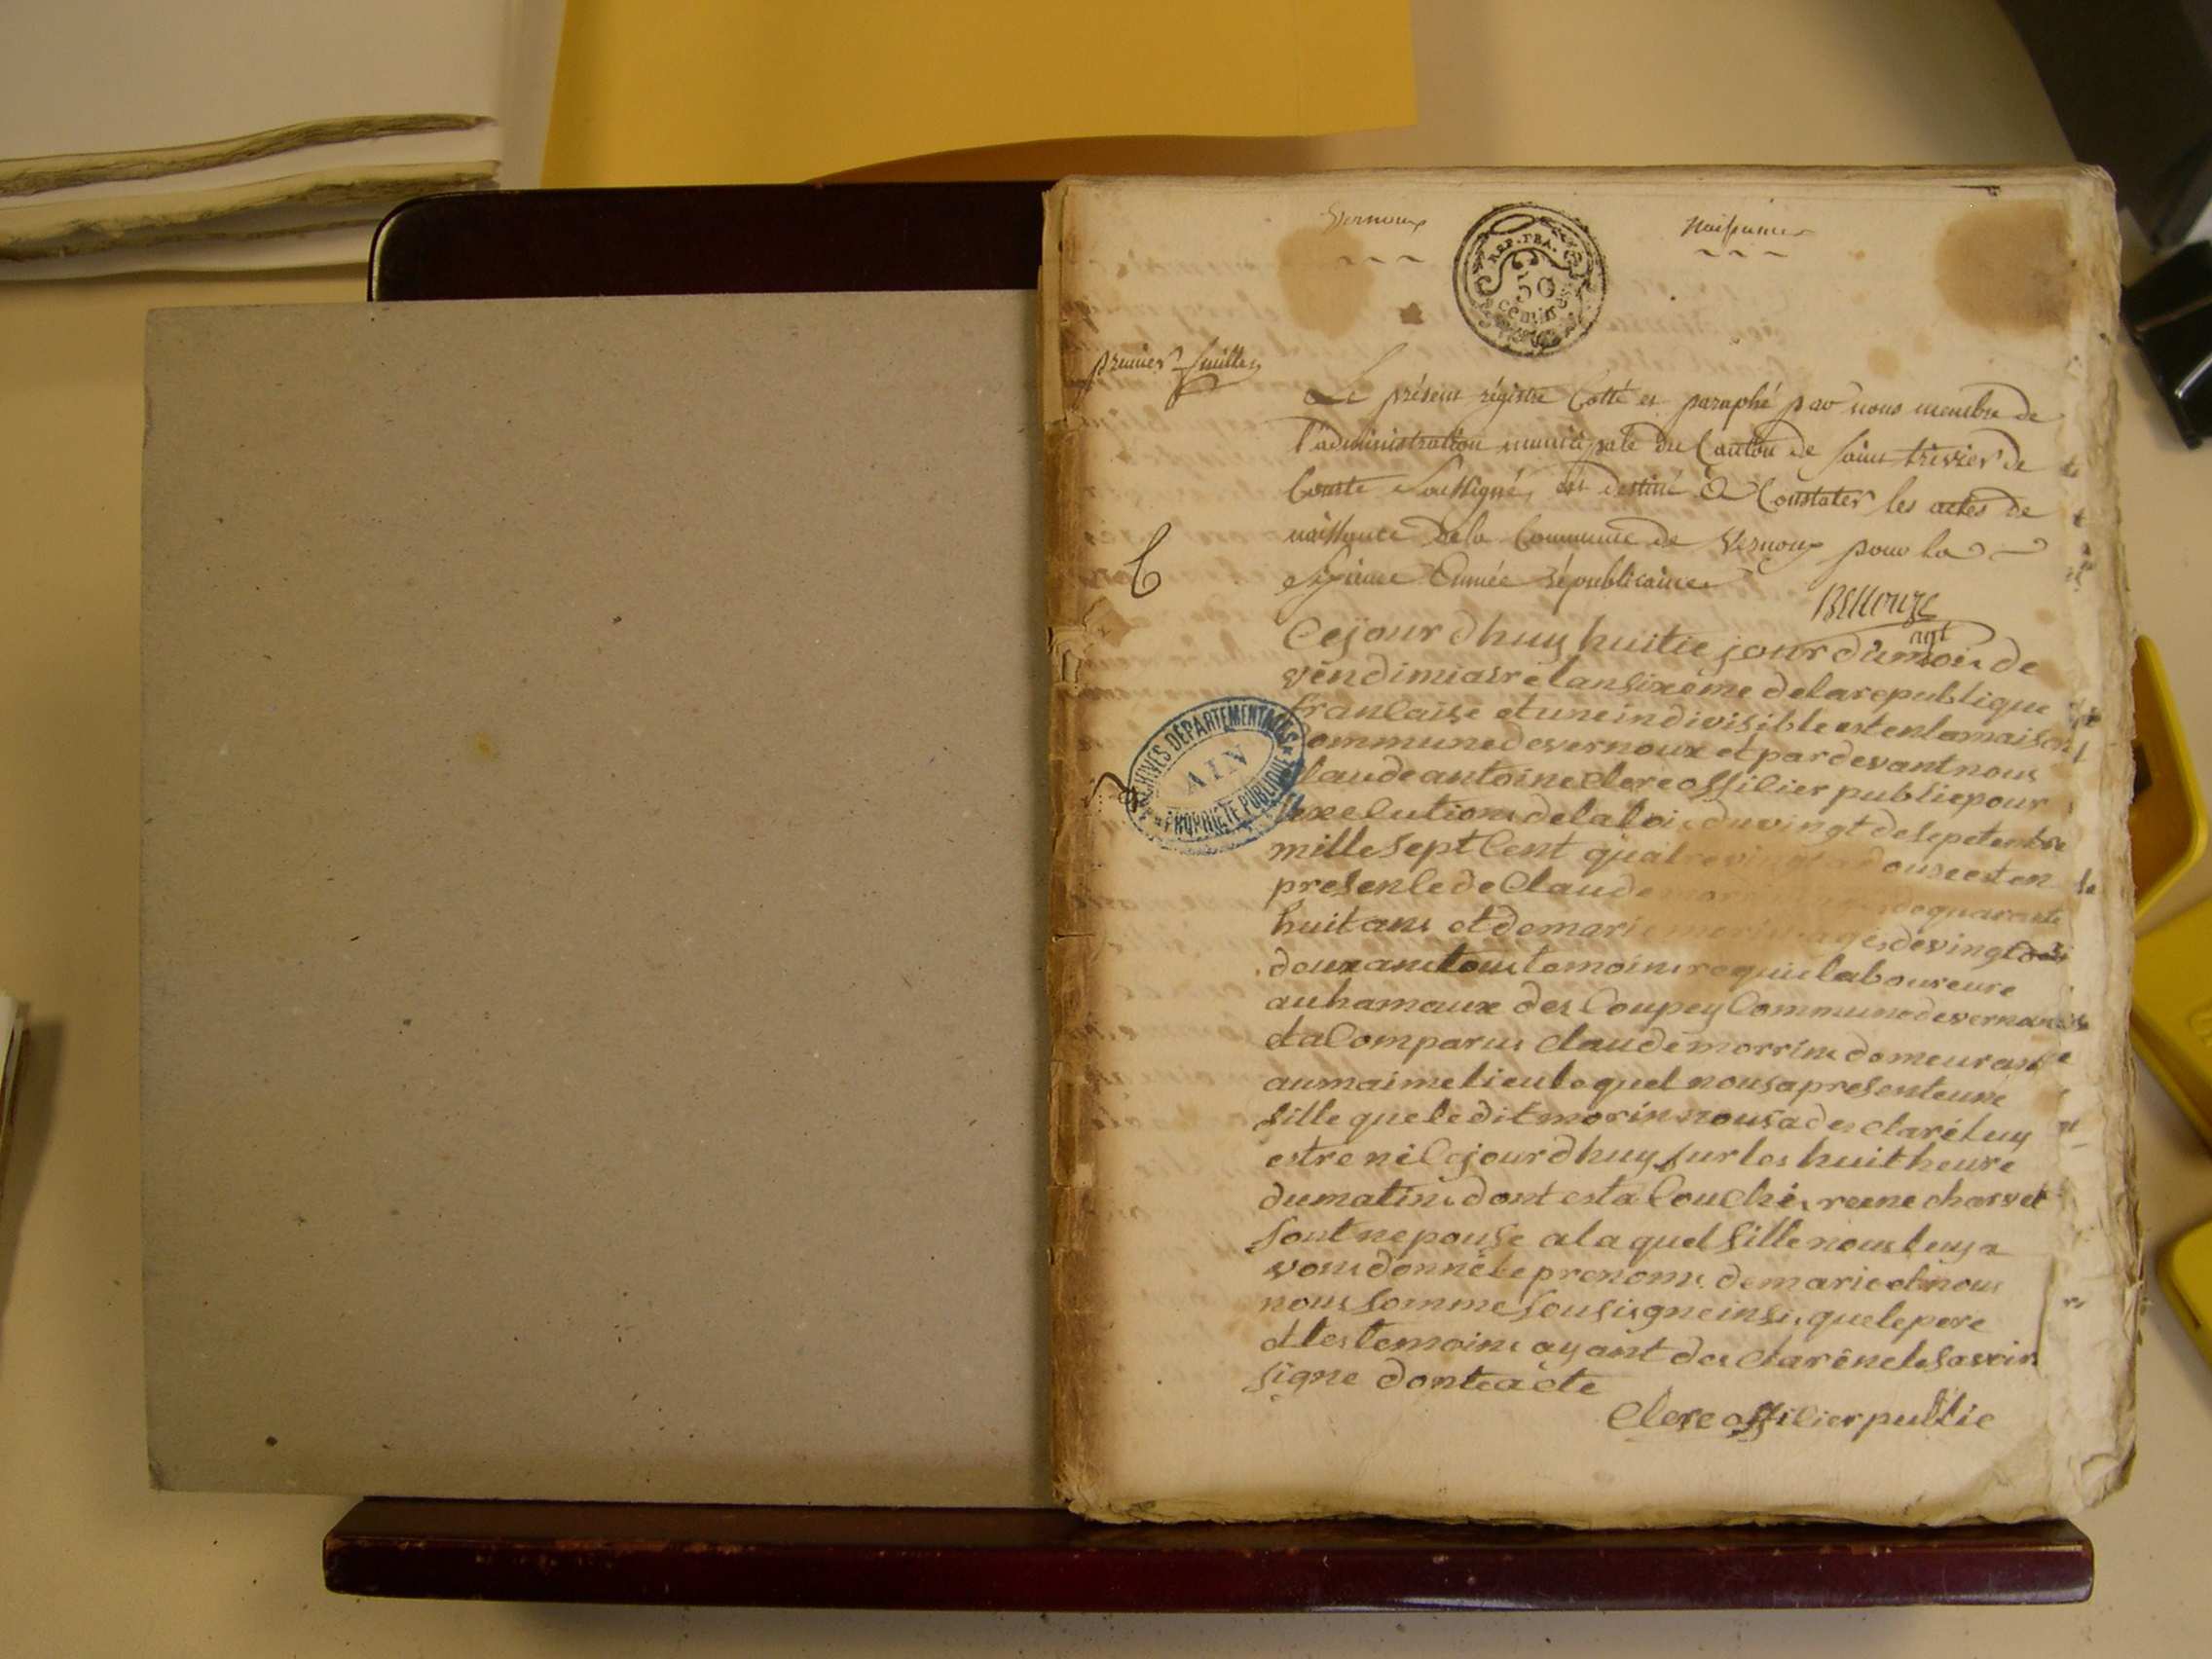 Vernoux
Naissances
REP. FRA.
50
centimes
premier feuillet
Le présent régistre Cotté et paraphé par nous membre de
l'administration municipale du Canton de saint trivier de
Courte soussigné, est destiné à Constater les actes de
naissance de la Commune de Vernoux pour la
sixieme année républicaine
Cejourdhuy huitie jour dumois de
vendimiaire lansixeme delarepublique
francaise etuneindivisible estenlamaison
Commune desvernoux et pardevantnous
Claude antoine Clerc officier publicpour
lexecution delaloi duvingt desepetembre
mille sept Cent quatrevingt douse esten
presence de Claude dequarente
huit ans et demarie agés devingt
deux ans tous temoins requis laboureure
auhamaux des Coupey Commune devernoux
eta Comparus Claude morrin demeurant
aumaime lieu lequel nousapresenteune
fille queledit morin nousadesclaré luy
estre né Cejourdhuy sur les huit heure
dumatin dont esta Couché reine charvet
sont nepouse alaquel fille nous luy a
vons donné le prenom demarie et nous
nous somme sousigne insi que le pere
et les temoins ayant desclaré ne le savoir
signe dont acte
Clerc officier public
ARCHIVES DÉPARTEMENTALES
AIN
PROPRIÉTÉ PUBLIQUE